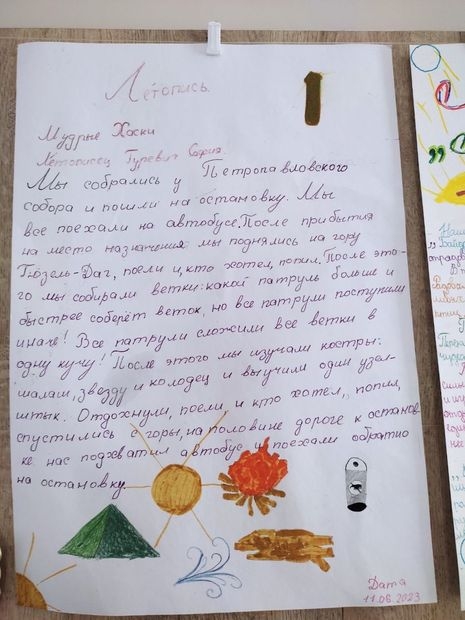 Летопись.
1
Мудрые Хаски
Летописец Гуревич София.
Мы собрались у Петропавловского
собора и пошли на остановку. Мы
все поехали на автобусе. После прибытия
на место назначения мы поднялись на гору
Гёзель-Даг, поели и, кто хотел, попил. После это-
го мы собирали ветки: какой патруль больше и
быстрее соберёт веток, но все патрули поступили
иначе! Все патрули сложили все ветки в
одну кучу! После этого мы изучали костры:
шалаш, звезду и колодец и выучили один узел-
штык. Отдохнули, поели и кто хотел, попил,
спустились с горы, на половине дороге к останов
ке нас подхватил автобус и поехали обратно
на остановку.
Дата
11.06.2023